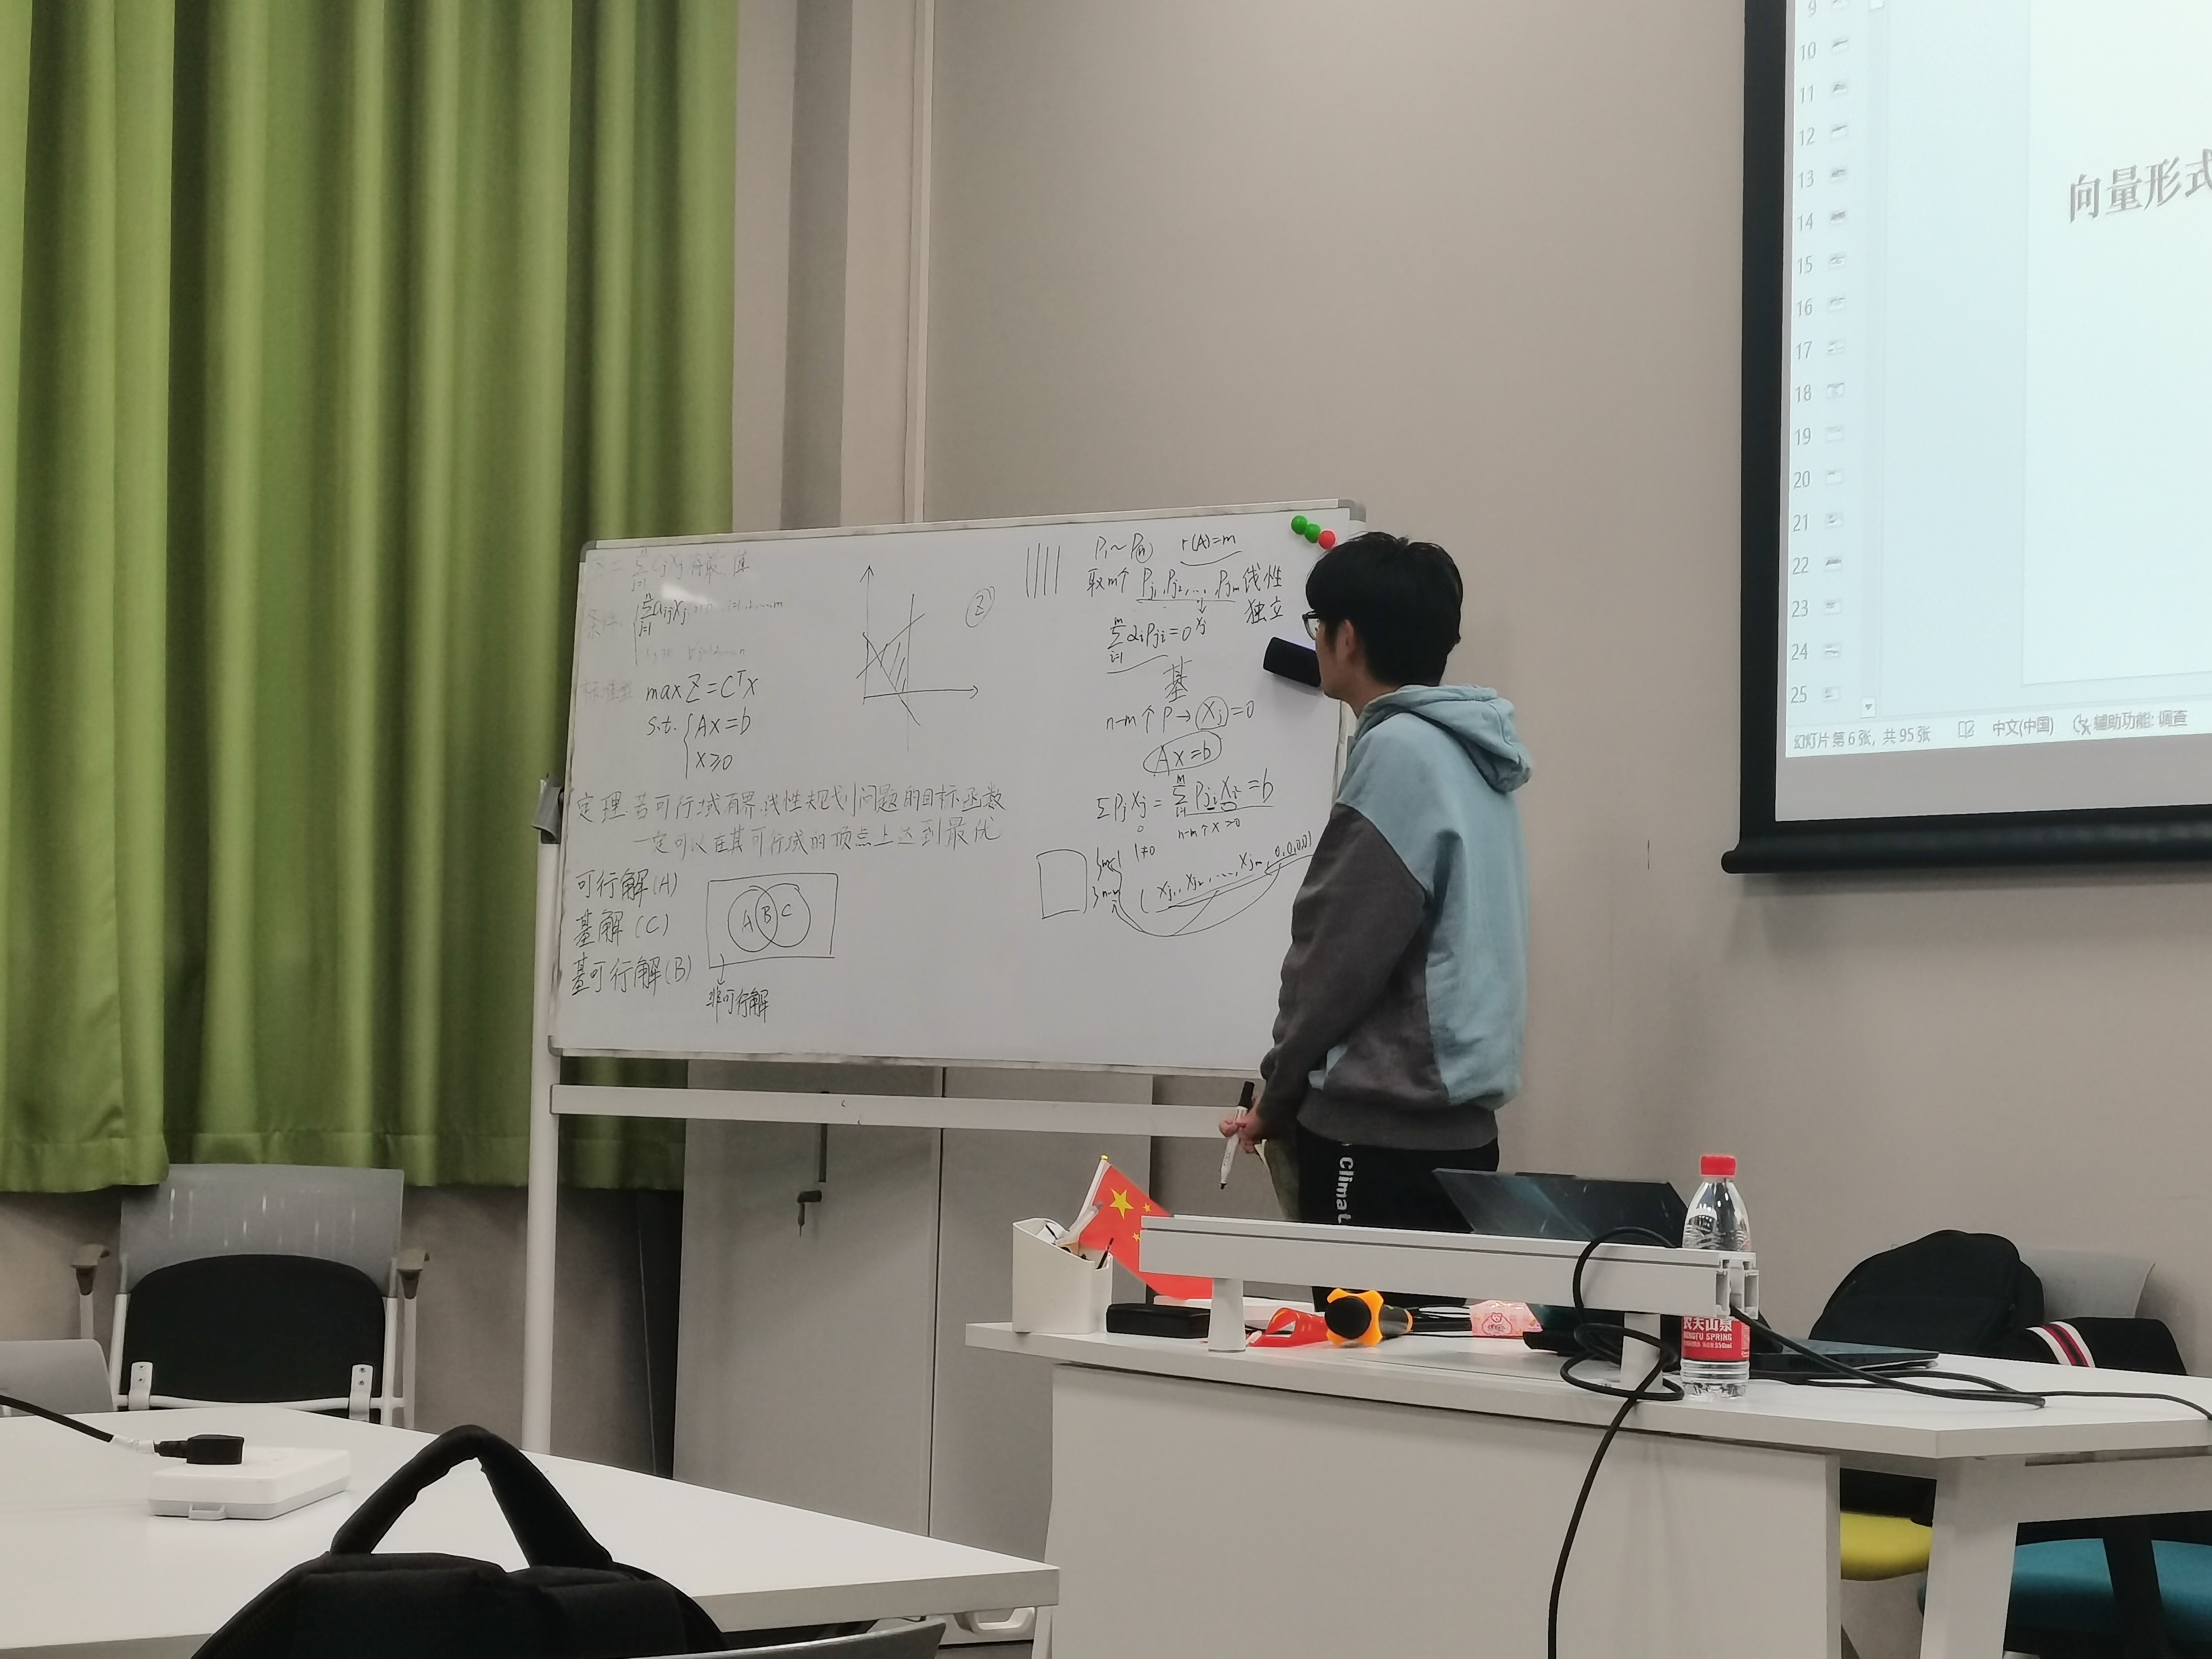 max Z = CᵀX
s.t. { AX = b
X ≥ 0
定理:若可行域有界,线性规划问题的目标函数
一定可以在其可行域的顶点上达到最优
可行解(A)
基解(C)
基可行解(B)
A B C
非可行解
Z
P₁~Pₙ r(A)=m
取m个 Pj₁,Pj₂,…,Pjm 线性
独立
∑ αᵢPjᵢ=0
基
n-m个 P→Xj=0
AX=b
∑PjXj = ∑PjᵢXjᵢ = b
(Xj₁,Xj₂,…,Xjm,0,0,0,0)
9
10
11
12
13
14
15
16
17
18
19
20
21
22
23
24
25
向量形式
幻灯片 第 6 张, 共 95 张 中文(中国) 辅助功能: 调查
Climat
农夫山泉
NONGFU SPRING